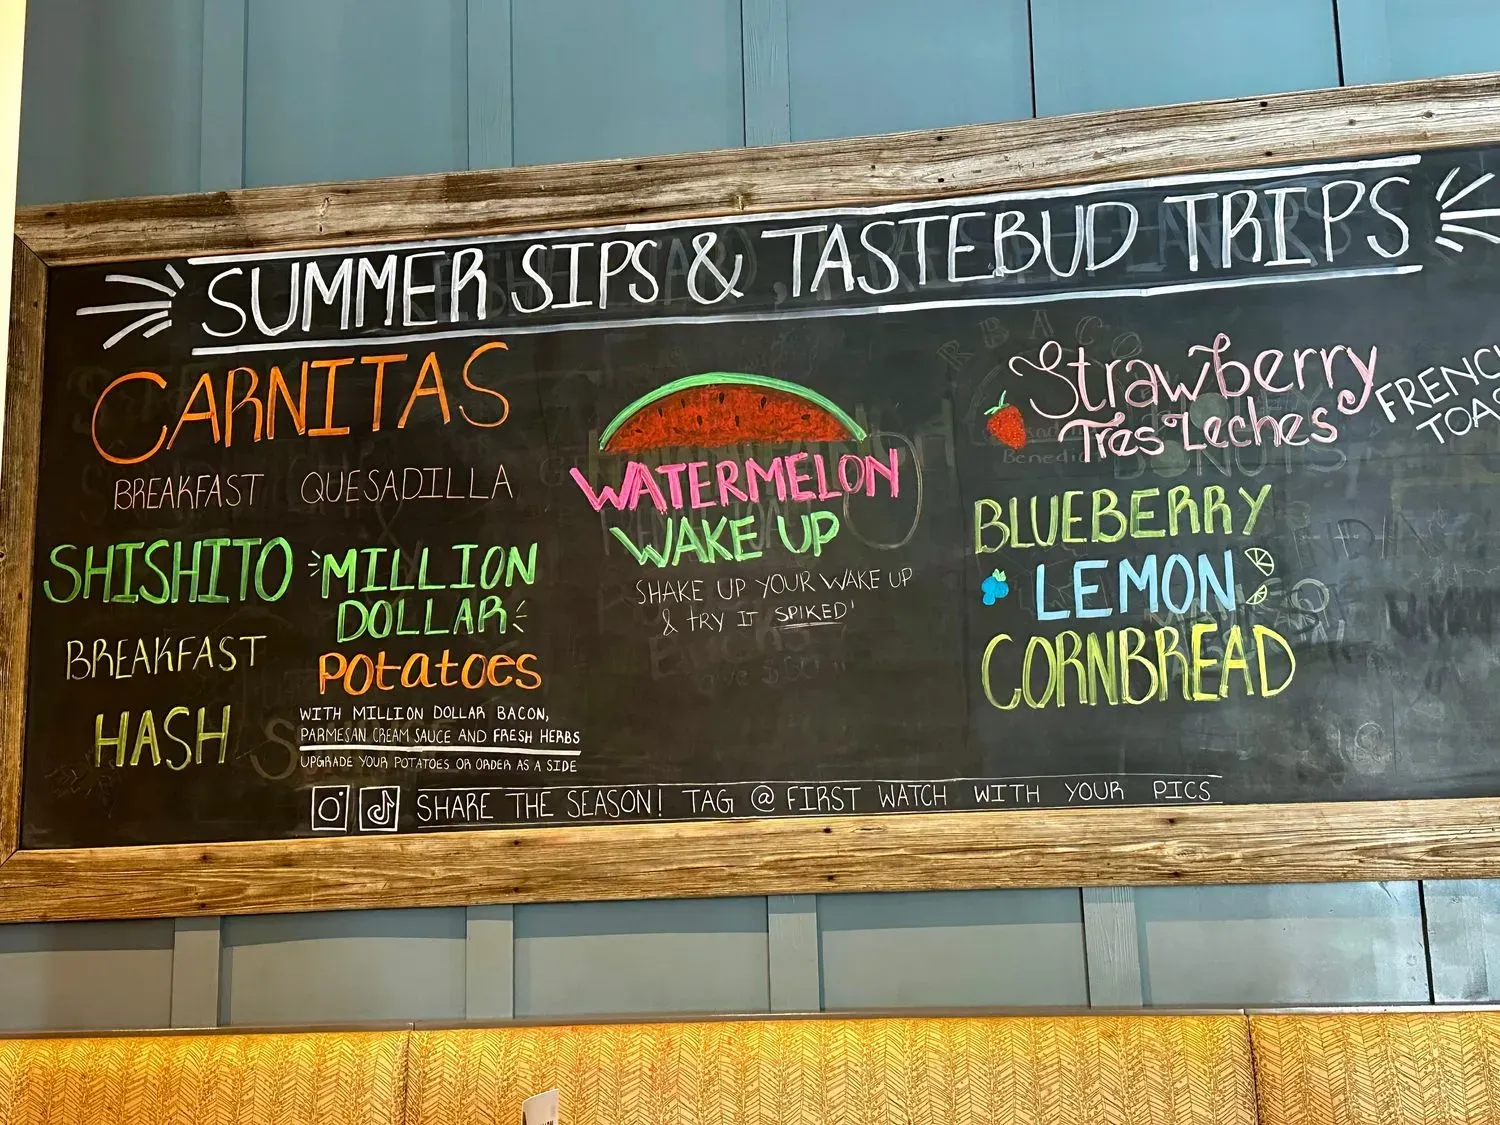 SUMMER SIPS & TASTEBUD TRIPS
CARNITAS
BREAKFAST QUESADILLA
SHISHITO
BREAKFAST
HASH
MILLION
DOLLAR
POtatoes
WITH MILLION DOLLAR BACON,
PARMESAN CREAM SAUCE AND FRESH HERBS
UPGRADE YOUR POTATOES OR ORDER AS A SIDE
WATERMELON
WAKE UP
SHAKE UP YOUR WAKE UP
& TRY IT SPIKED'
Strawberry
Tres Leches
FRENCH
TOAS
BLUEBERRY
LEMON
CORNBREAD
SHARE THE SEASON! TAG @ FIRST WATCH WITH YOUR PICS